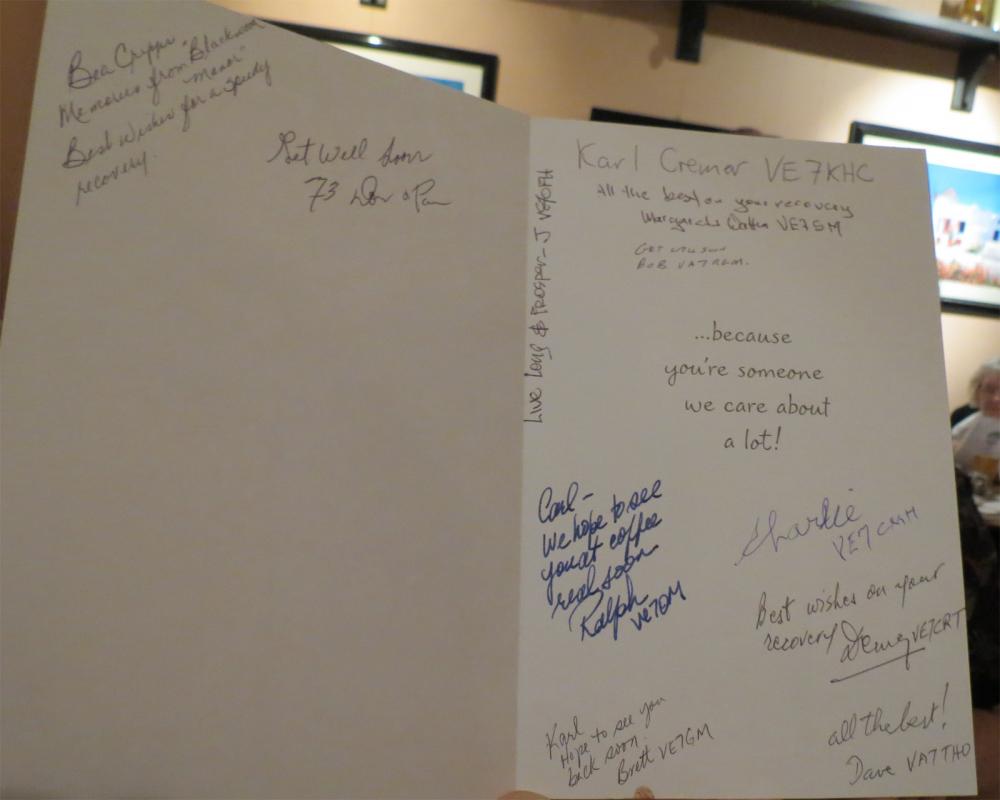 Bea Cripps.
Memories from "Blackwood
Manor"
Best wishes for a speedy
recovery.
Get Well Soon
73 Don & Pam
Live Long & Prosper - J
Karl Cremer VE7KHC
All the best on your recovery
VE7SM
GET WELL SOON
BOB
...because
you're someone
we care about
a lot!
Carl -
We hope to see
you at coffee
real soon
Ralph
VE7OM
Charlie
VE7
Best wishes on your
recovery VE7CRT
Karl
Hope to see you
back soon.
Brett VE7GM
all the best!
Dave VA7THO